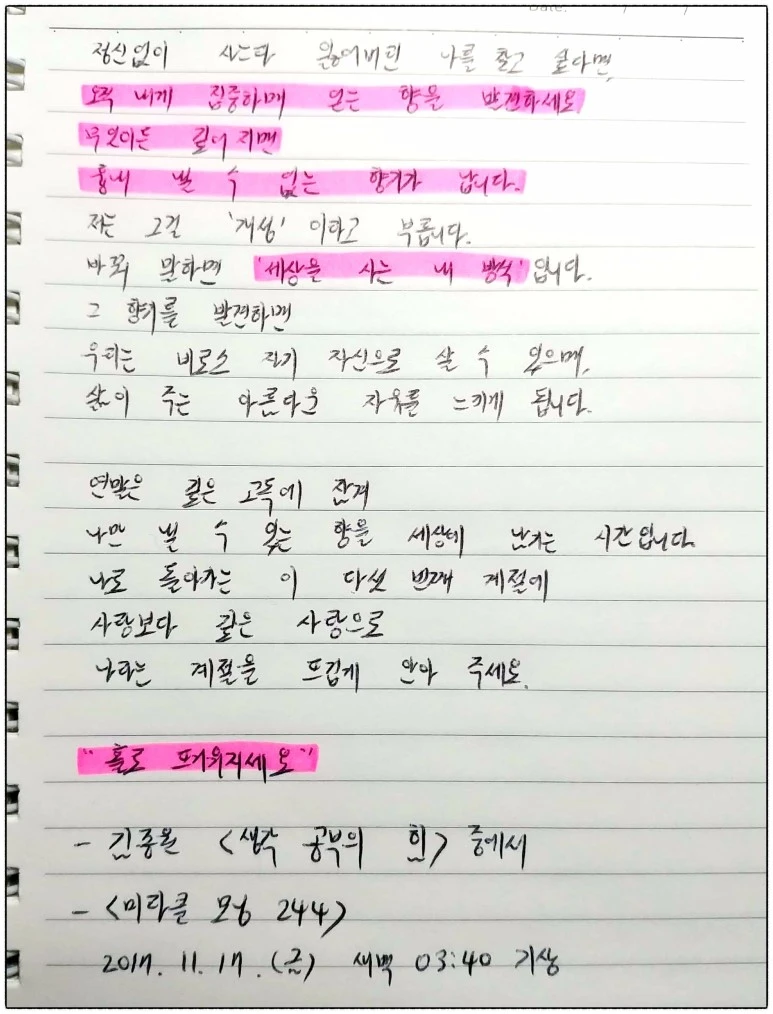 Date. / /
정신없이 사느라 잃어버린 나를 찾고 싶다면,
오직 내게 집중하며 얻는 향을 발견하세요.
무엇이든 깊어지면
흉내 낼 수 없는 향기가 납니다.
저는 그걸 '개성' 이라고 부릅니다.
바꿔 말하면 '세상을 사는 내 방식' 입니다.
그 향기를 발견하면
우리는 비로소 자기 자신으로 살 수 있으며,
삶이 주는 아름다운 자유를 느끼게 됩니다.
연말은 깊은 고독에 잠겨
나만 낼 수 있는 향을 세상에 남기는 시간입니다.
나로 돌아가는 이 다섯 번째 계절에
사랑보다 깊은 사랑으로
나라는 계절을 뜨겁게 안아 주세요.
"홀로 뜨거워지세요"
- 김종원 <생각 공부의 힘> 중에서
- <미라클 모닝 244>
2017. 11. 17. (금) 새벽 03:40 기상